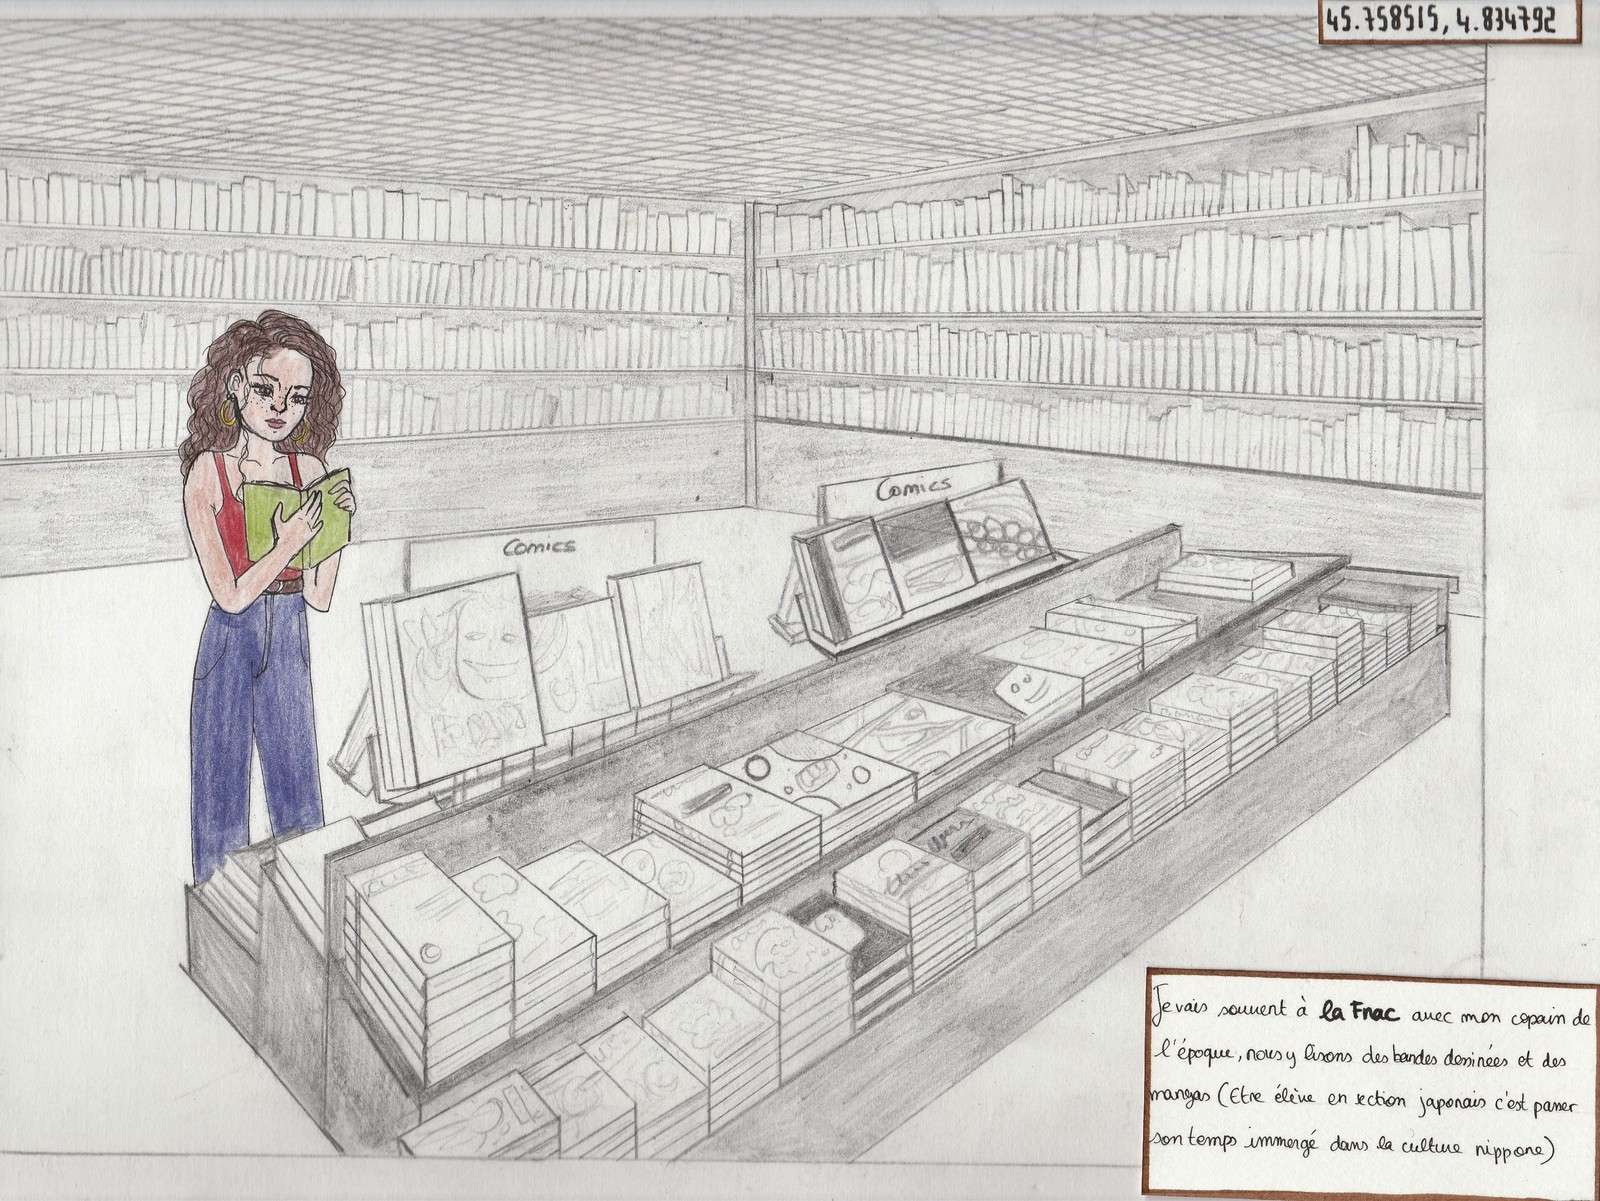 45.758515, 4.834792
Comics
Comics
Je vais souvent à la Fnac avec mon copain de
l'époque, nous y lisons des bandes dessinées et des
mangas (Etre élève en section japonais c'est passer
son temps immergé dans la culture nippone)